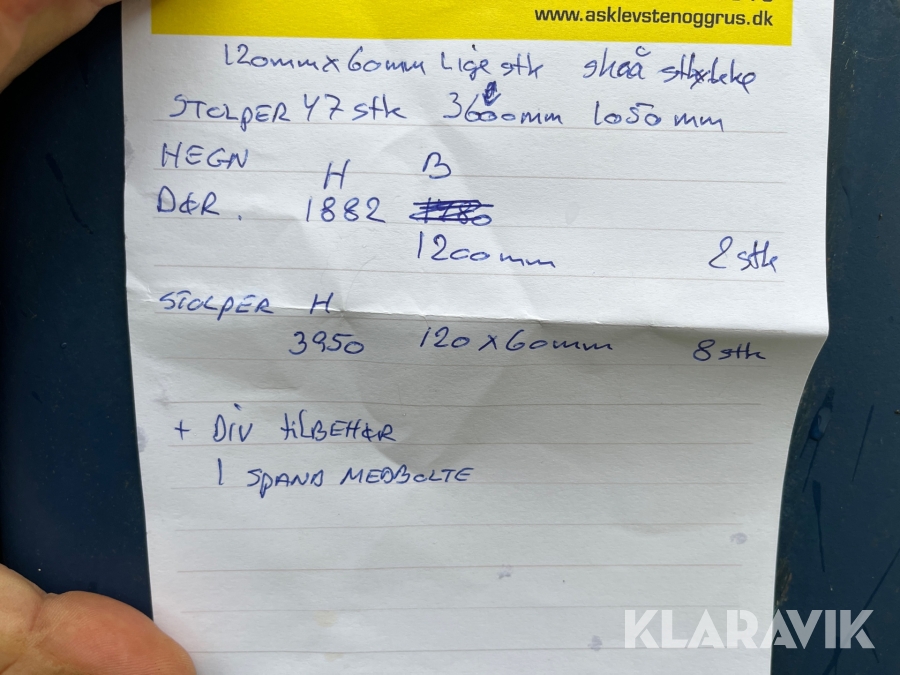 www.asklevstenoggrus.dk
120mmx60mm Lige stk skrå
STOLPER 47 stk 3600mm 1050 mm
HEGN H B
DØR. 1882
1200mm 2 stk
STOLPER H
3950 120 x 60mm 8 stk
+ DIV tilBEHØR
1 SPAND MEDBOLTE
KLARAVIK